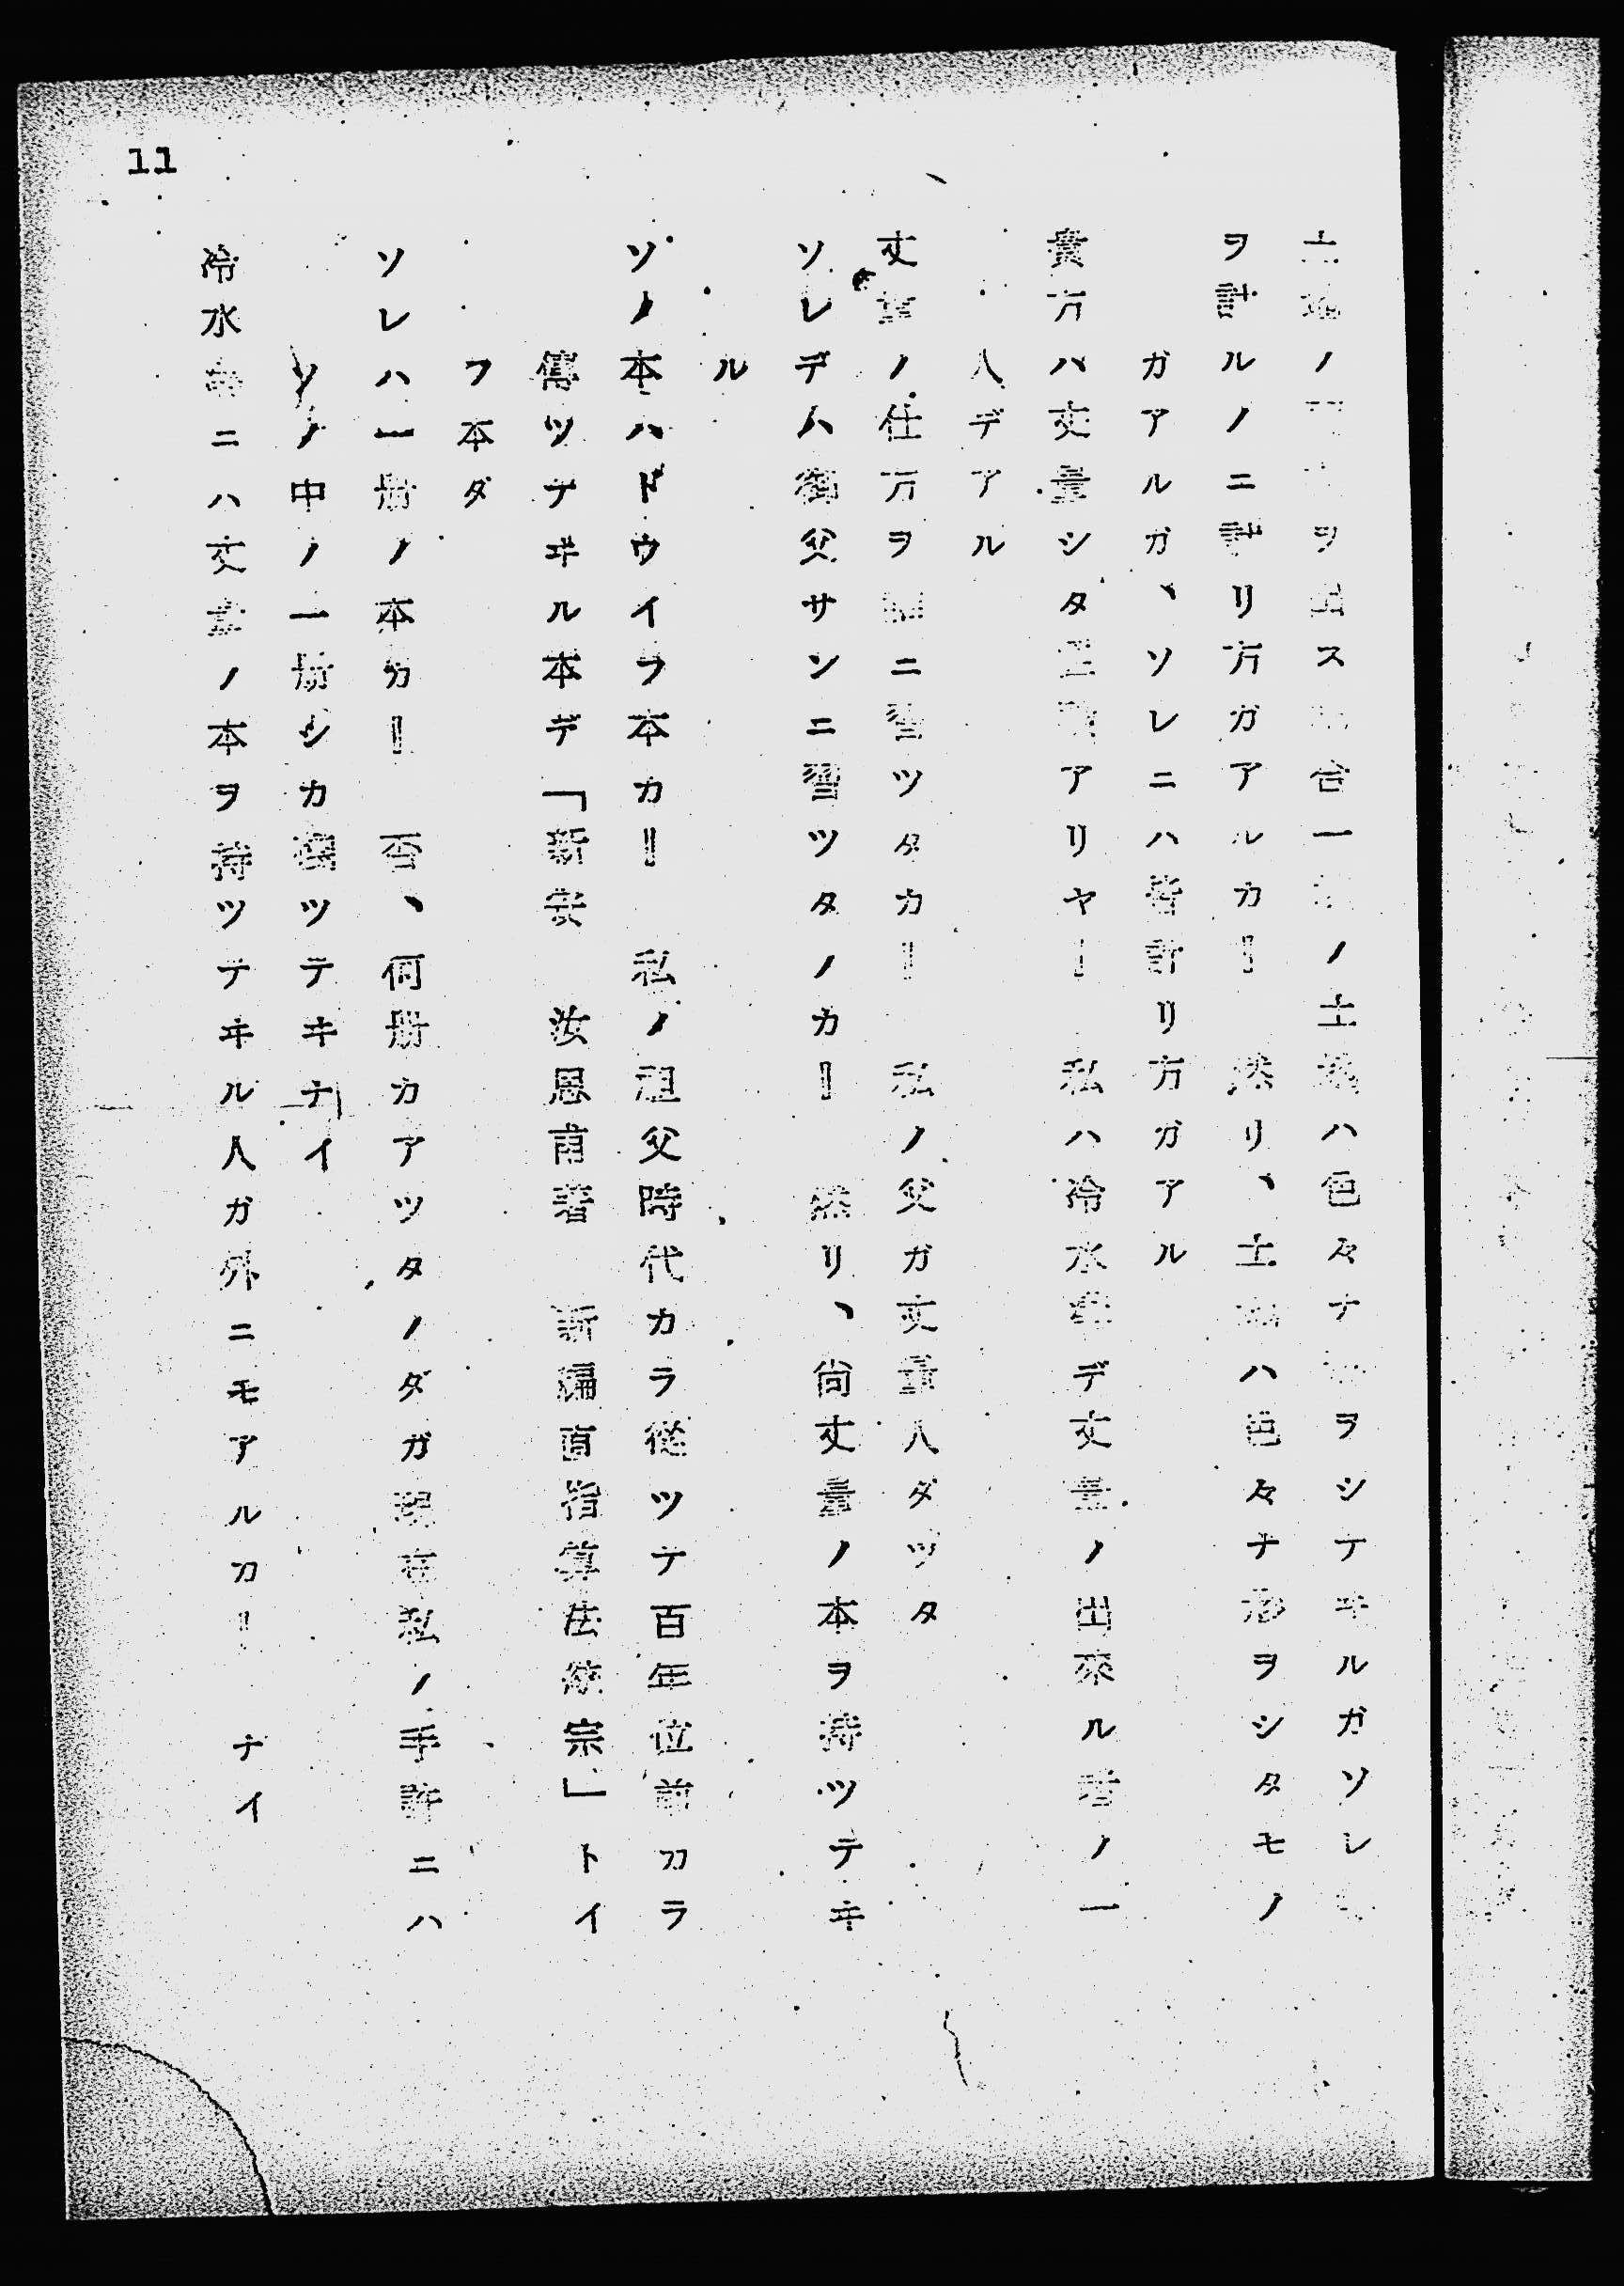 11
土地ノ ヲ ス 合一 ノ土地ハ色々ナ ヲシテヰルガソレ
ヲ計ルノニ計リ方ガアルカ‖ 然リ、土地ハ色々ナ形ヲシタモノ
ガアルガ、ソレニハ皆計リ方ガアル
貴方ハ丈量シタ アリヤ‖ 私ハ冷水 デ丈量ノ出來ル者ノ一
人デアル
丈量ノ仕方ヲ ニ習ツタカ‖ 私ノ父ガ丈量人ダツタ
ソレデハ御父サンニ習ツタノカ‖ 然リ、尙丈量ノ本ヲ持ツテヰ
ル
ソノ本ハドウイフ本カ‖ 私ノ祖父時代カラ從ツテ百年位前カラ
傳ツテヰル本デ「新安 汝思甫著 新編直指算法統宗」トイ
フ本ダ
ソレハ一册ノ本カ‖ 否、何册カアツタノダガ現在私ノ手許ニハ
ソノ中ノ一册シカ殘ツテヰナイ
冷水 ニハ丈量ノ本ヲ持ツテヰル人ガ外ニモアルカ‖ ナイ